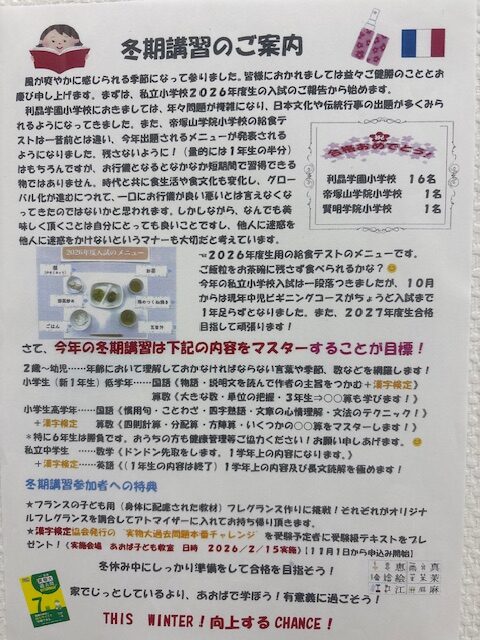 冬期講習のご案内
風が爽やかに感じられる季節になって参りました。皆様におかれましては益々ご健勝のこととお
慶び申し上げます。まずは、私立小学校2026年度生の入試のご報告から始めます。
利晶学園小学校におきましては、年々問題が複雑になり、日本文化や伝統行事の出題が多くみら
れるようになってきました。また、帝塚山学院小学校の給食テ
ストは一昔前とは違い、今年出題されるメニューが発表される
ようになりました。残さないように！（量的には1年生の半分）
はもちろんですが、お行儀となるとなかなか短期間で習得できる
物ではありません。時代と共に食生活や食文化も変化し、グロー
バル化が進むにつれて、一口にお行儀が良い悪いとは言えなくな
ってきたのではないかと思われます。しかしながら、なんでも美
味しく頂くことは自分にとっても良いことですし、他人に迷惑を
他人に迷惑をかけないというマナーも大切だと考えています。
合格おめでとう！
利晶学園小学校 16名
帝塚山学院小学校 1名
賢明学院小学校 1名
2026年度入試のメニュー
ごはん
☜2026年度生用の給食テストのメニューです。
ご飯粒をお茶碗に残さず食べられるかな？😊
今年の私立小学校入試は一段落つきましたが、10月
からは現年中児ビギニングコースがちょうど入試まで
1年足らずとなりました。また、2027年度生合格
目指して頑張ります！
さて、今年の冬期講習は下記の内容をマスターすることが目標！
2歳～幼児……年齢において理解しておかなければならない言葉や季節、数などを網羅します！
小学生（新1年生）低学年……国語《物語・説明文を読んで作者の主旨をつかむ＋漢字検定》
算数《大きな数・単位の把握・3年生⇒○○算も学びます！》
小学生高学年……国語《慣用句・ことわざ・四字熟語・文章の心情理解・文法のテクニック！》
＋漢字検定 算数《四則計算・分配算・方陣算・いくつかの○○算をマスターします！》
＊特に6年生は勝負です。おうちの方も健康管理等ご協力ください！お願い申しあげます。😊
私立中学生 ……数学《ドンドン先取をします。1学年上の内容になります。》
＋漢字検定 ……英語《（1年生の内容は終了）1学年上の内容及び長文読解を極めます！
冬期講習参加者への特典
★フランスの子ども用（身体に配慮された教材）フレグランス作りに挑戦！それぞれがオリジナ
ルフレグランスを調合してアトマイザーに入れてお持ち帰り頂きます。
★漢字検定協会発行の“実物大過去問題本番チャレンジ”を受験予定者に受験級テキストをプレ
ゼント！（実施会場 あおば子ども教室 日時 2026／2／15実施）【11月1日から申込み開始】
冬休み中にしっかり準備をして合格を目指そう！
家でじっとしているより、あおばで学ぼう！有意義に過ごそう！
THIS WINTER！向上するCHANCE！
7
恵 真
絵 茉
江 麻